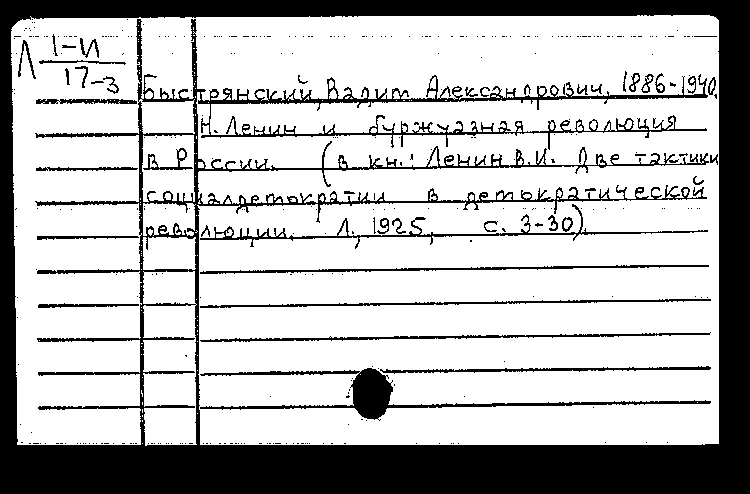 Л 1-И
17-3
Быстрянский, Вадим Александрович, 1886-1940.
Н. Ленин и буржуазная революция
в России. (в кн.: Ленин В.И. Две тактики
социалдемократии в демократической
революции. Л., 1925, с. 3-30).